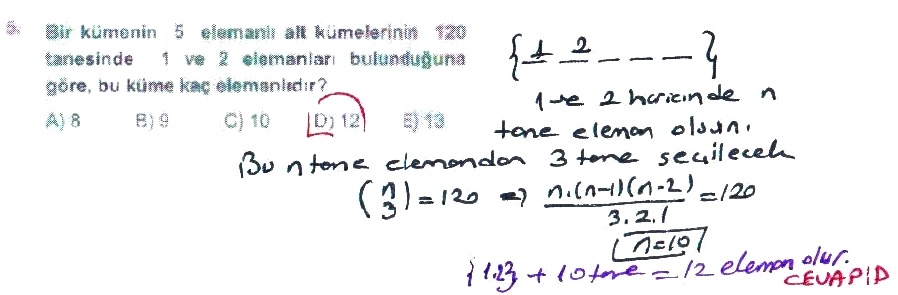 5. Bir kümenin 5 elemanlı alt kümelerinin 120
tanesinde 1 ve 2 elemanları bulunduğuna
göre, bu küme kaç elemanlıdır?
A) 8 B) 9 C) 10 D) 12 E) 13
{1 2 _ _ _}
1 ve 2 haricinde n
tane eleman olsun.
Bu n tane elemandan 3 tane seçilecek
(n 3) = 120 => n.(n-1)(n-2) / 3.2.1 = 120
n=10
{1,2} + 10 tane = 12 eleman olur.
CEVAP D